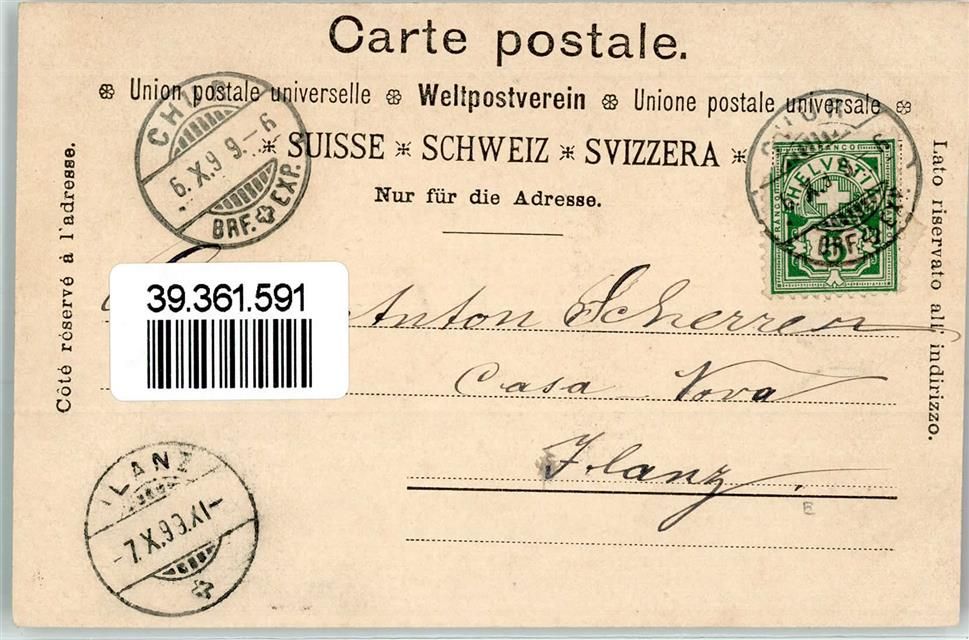 Carte postale.
Union postale universelle Weltpostverein Unione postale universale
* SUISSE * SCHWEIZ * SVIZZERA *
Nur für die Adresse.
Côté réservé à l'adresse.
Lato riservato all' indirizzo.
CHUR
6.X.99.–6
BRF. EXP.
CHUR
BRF. EXP.
FRANCO
HELVETIA
5
39.361.591
Anton Scherrer
Casa Nova
Ilanz.
ILANZ
–7.X.99.XI–
E